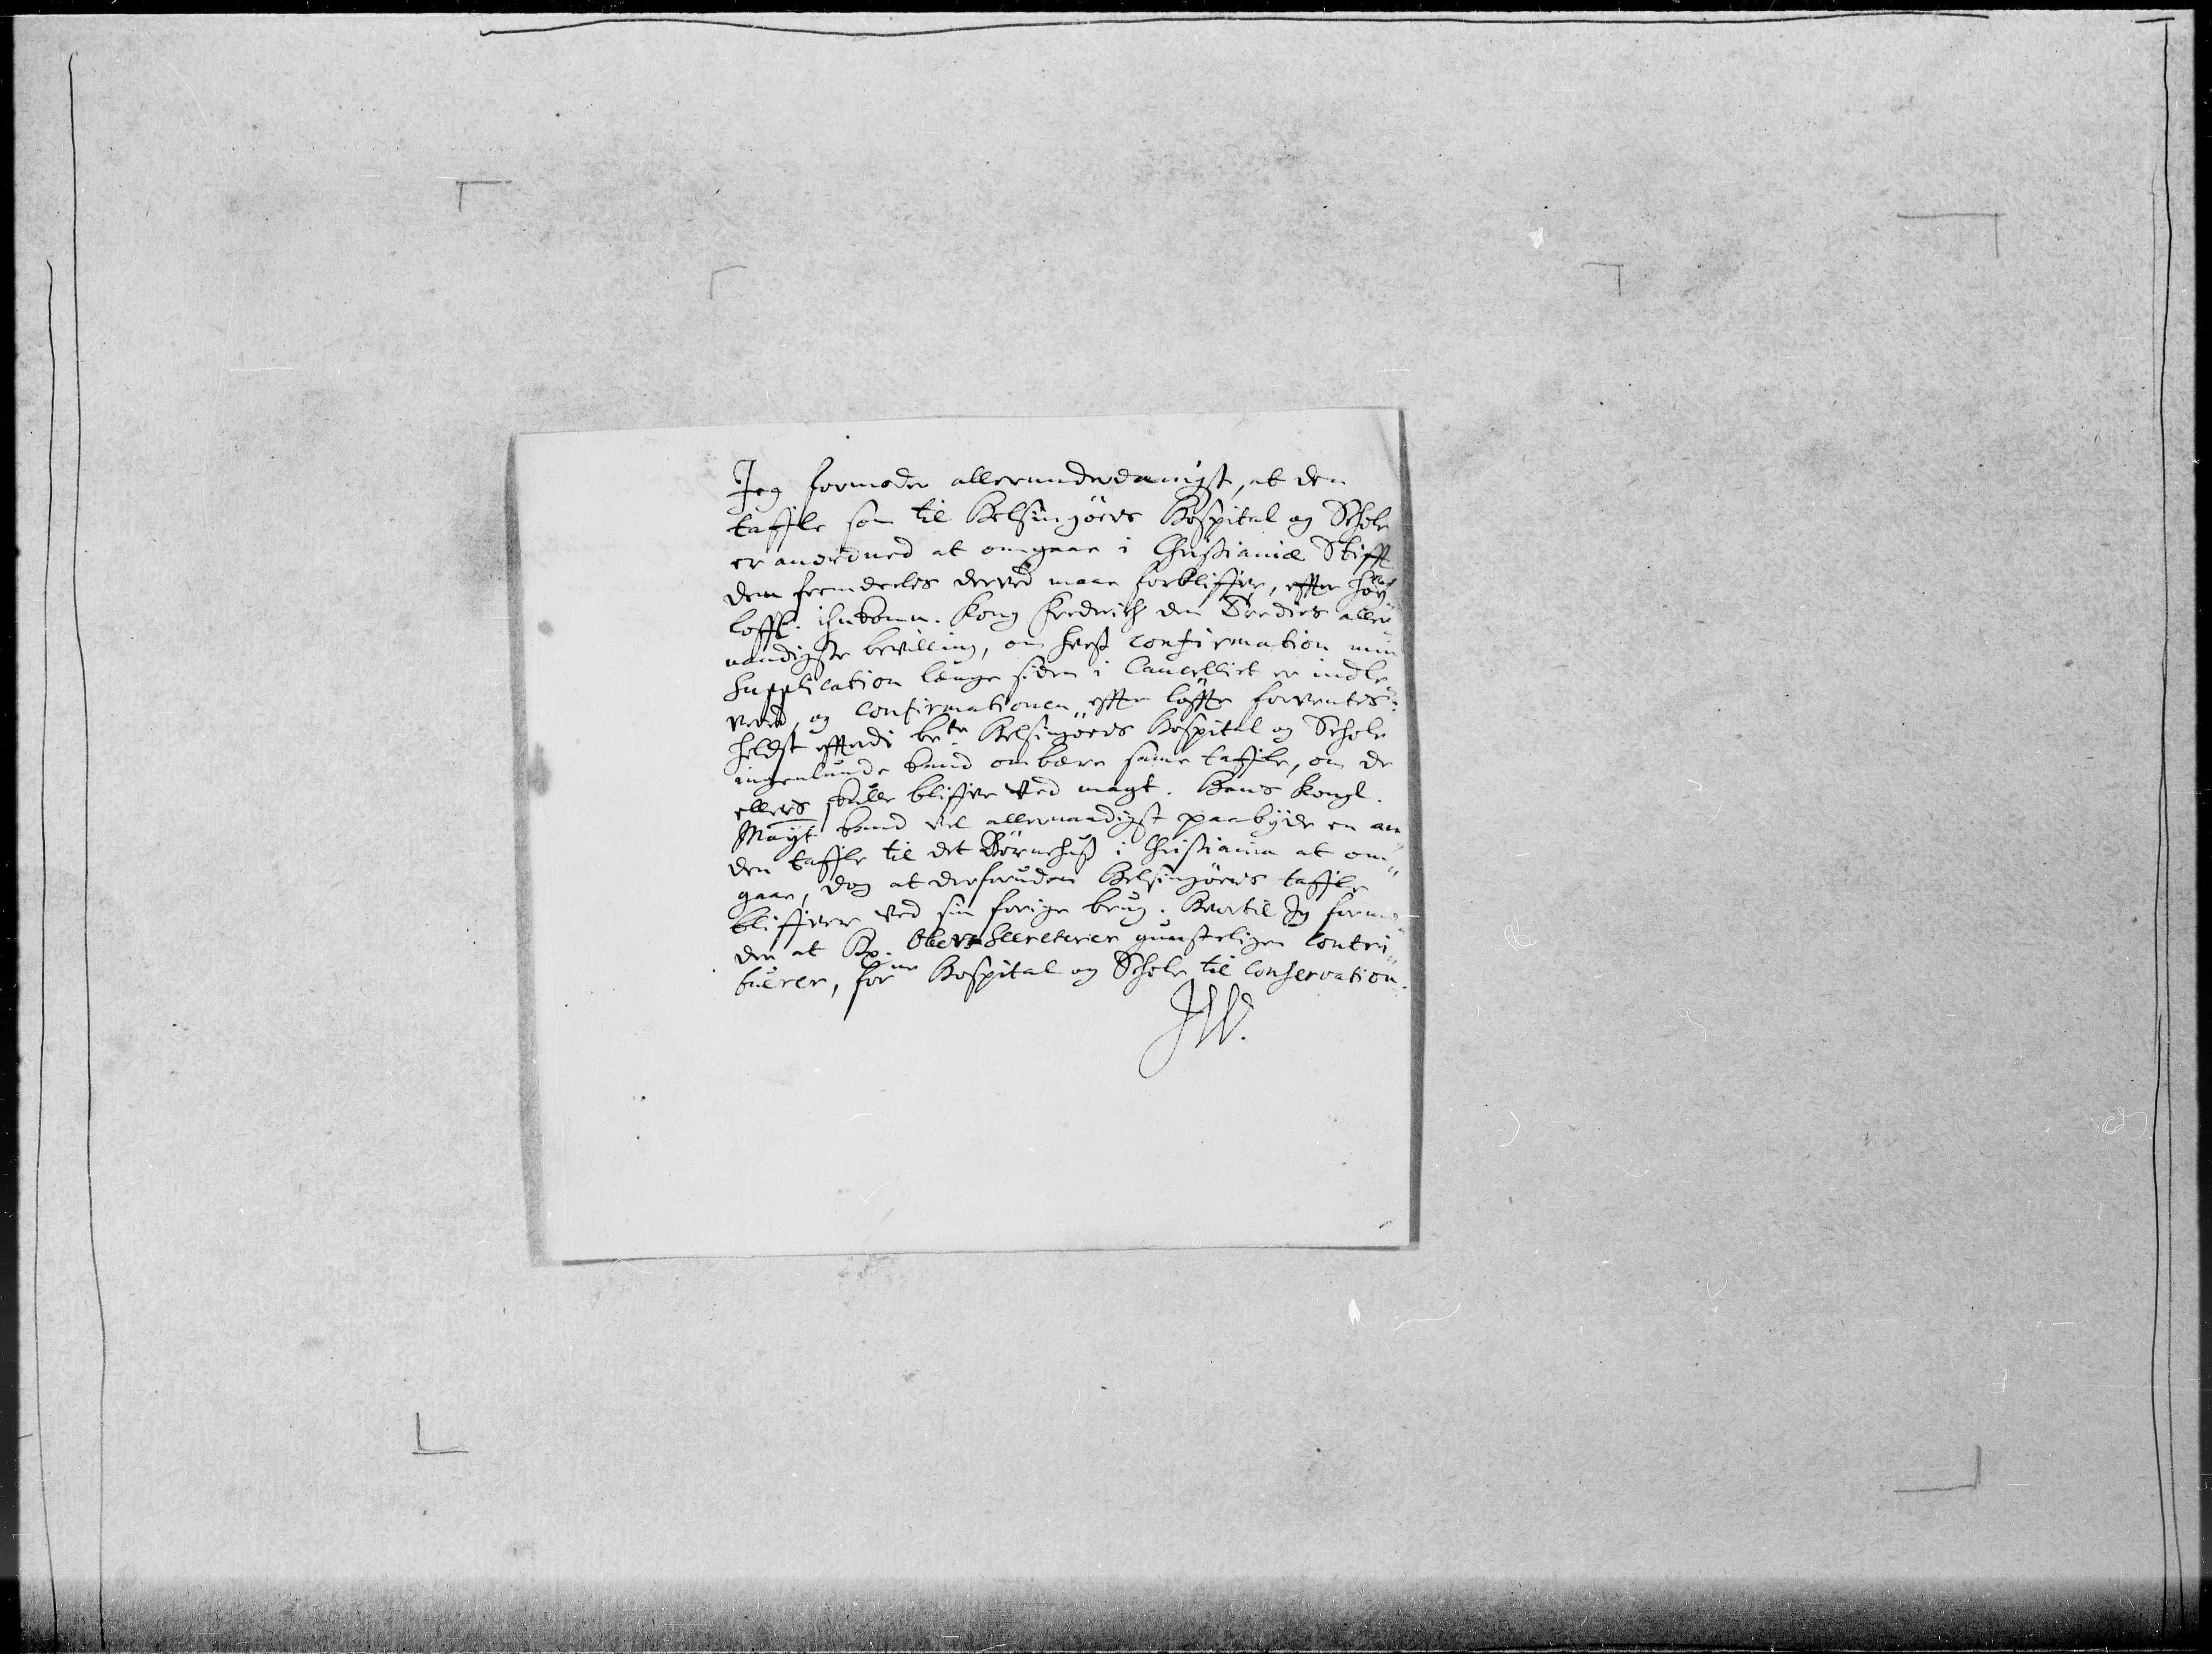 Jeg formoder allerunderdanigst, at den
taffle som til Helsingöers Hospital og Schole
er anordned at omgaae i Christianiæ Stifft
dem fremdeeles derved maae forbliffve, effter höÿ
loffl. ihukomm. Kong Frederich den Tredies aller
naadigste bevilling, om hvess confirmation min
Supplication længe siden i Cancelliet er indle
vered, og confirmationen effter löffte forventes:
helst effterdi bete Helsingöers Hospital og Schole
ingenlunde kand ombære samme taffle, om de
ellers skulle bliffve ved magt. Hans Kongl.
Maÿt. kand vel allernaadigst paabÿde en an
den taffle til det Börnehuß i Christiania at om
gaae, dog at desforuden Helsingöers taffle
bliffver ved sin forige brug. Hvortil Jeg formo
der at Hr. Ober Secreterer gunsteligen contri
buerer, forne Hospital og Schole til conservation.
JW.